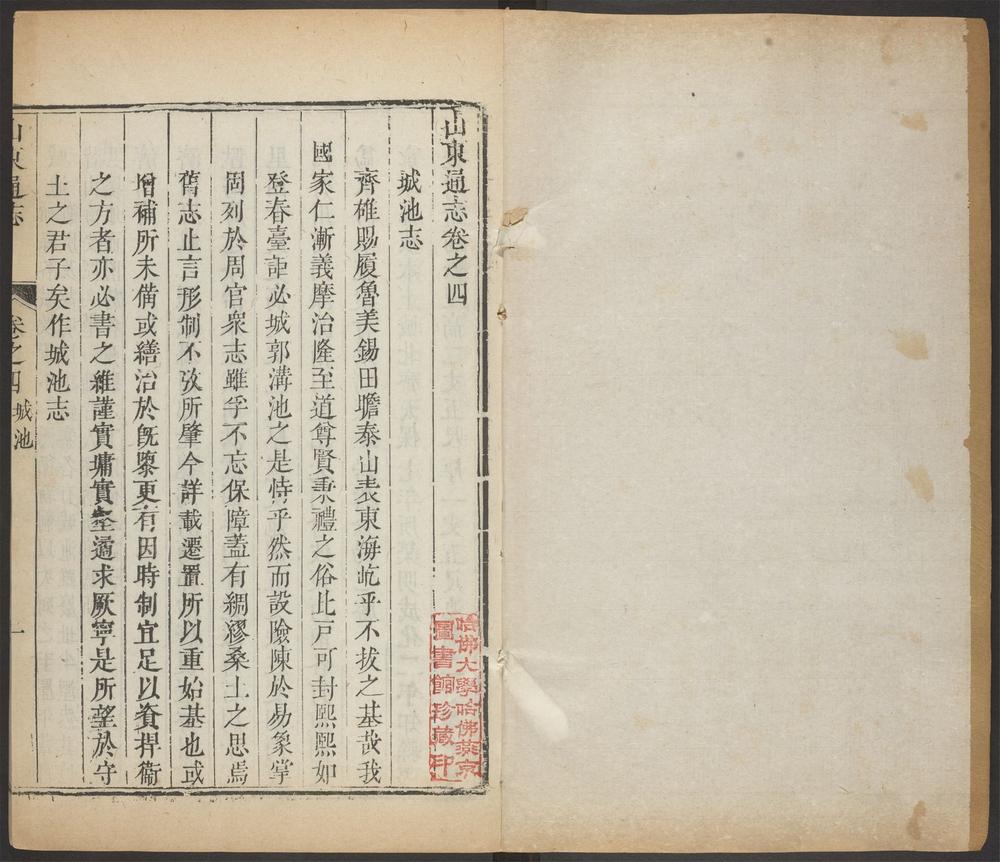 山東通志卷之四
城池志
齊雄賜履魯美錫田瞻泰山表東海屹乎不拔之基哉我
國家仁漸義摩治隆至道尊賢秉禮之俗比戶可封熙熙如
登春臺詎必城郭溝池之是恃乎然而設險陳於易象掌
固列於周官衆志雖孚不忘保障蓋有綢繆桑土之思焉
舊志止言形制不攷所肇今詳載遷置所以重始基也或
增補所未備或繕治於旣隳更有因時制宜足以資捍衞
之方者亦必書之維謹實墉實壑遹求厥寧是所望於守
土之君子矣作城池志
山東通志
卷之四
城池
一
哈佛大學哈佛燕京
圖書館珍藏印